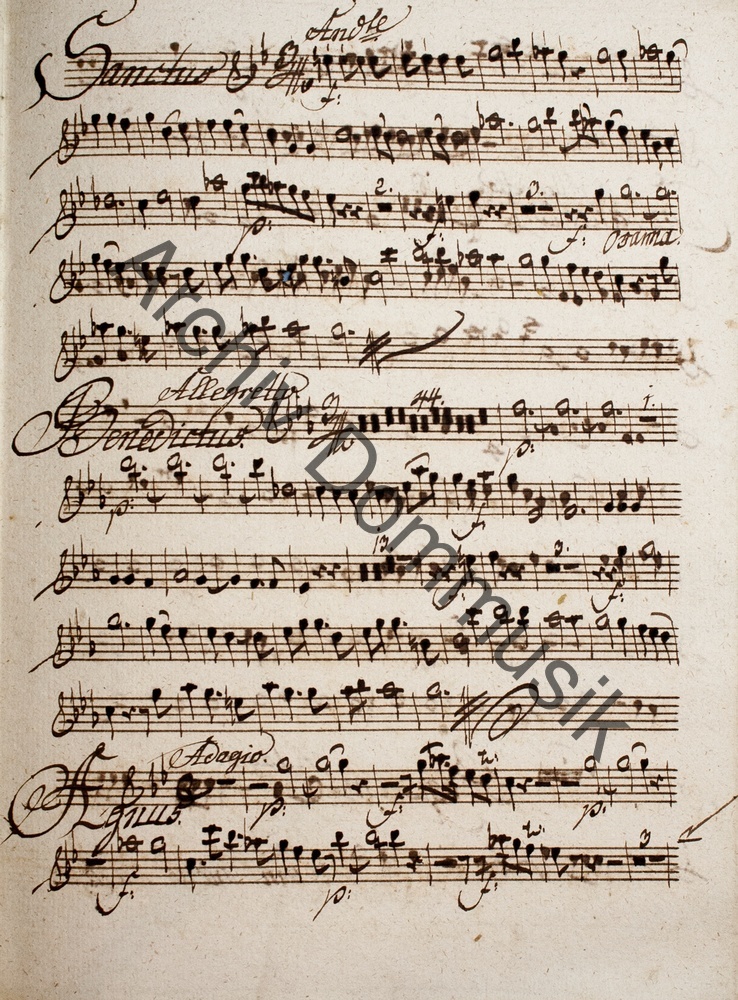 Andte
Sanctus
f:
2. 3.
p: f: f: Osanna.
Allegretto
44. 1.
Benedictus.
p:
p: f:
13 3.
f: f:
Adagio.
tr:
Agnus.
p: f: p:
tr: 3
f: p: f:
Archiv Dommusik